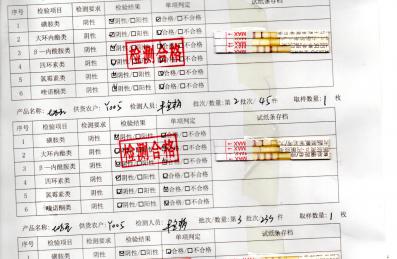 序号 检验项目 检测要求 检验结果 单项判定 试纸条存档
1 磺胺类 阴性 ☑阴性/□阳性 ☑合格/□不合格
2 大环内酯类 阴性 ☑阴性/□阳性 ☑合格/□不合格
3 β一内酰胺类 阴性 ☑阴性/□阳性 ☑合格/□不合格
4 四环素类 阴性 ☑阴性/□阳性 ☑合格/□不合格
5 氯霉素类 阴性 ☑阴性/□阳性 ☑合格/□不合格
6 喹诺酮类 阴性 ☑阴性/□阳性 ☑合格/□不合格
检测合格
产品名称: 供货农户: Y005 检测人员: 批次/数量:第2批次/45件 取样数量:1枚
序号 检验项目 检测要求 检验结果 单项判定 试纸条存档
1 磺胺类 阴性 ☑阴性/□阳性 ☑合格/□不合格
2 大环内酯类 阴性 ☑阴性/□阳性 ☑合格/□不合格
3 β一内酰胺类 阴性 ☑阴性/□阳性 ☑合格/□不合格
4 四环素类 阴性 ☑阴性/□阳性 ☑合格/□不合格
5 氯霉素类 阴性 ☑阴性/□阳性 ☑合格/□不合格
6 喹诺酮类 阴性 ☑阴性/□阳性 ☑合格/□不合格
检测合格
产品名称: 供货农户: Y005 检测人员: 批次/数量:第3批次/ 件 取样数量:1枚
序号 检验项目 检测要求 检验结果 单项判定 试纸条存档
1 磺胺类 阴性 ☑阴性/□阳性 ☑合格/□不合格
2 大环内酯类 阴性 □阳性 ☑合格/□不合格